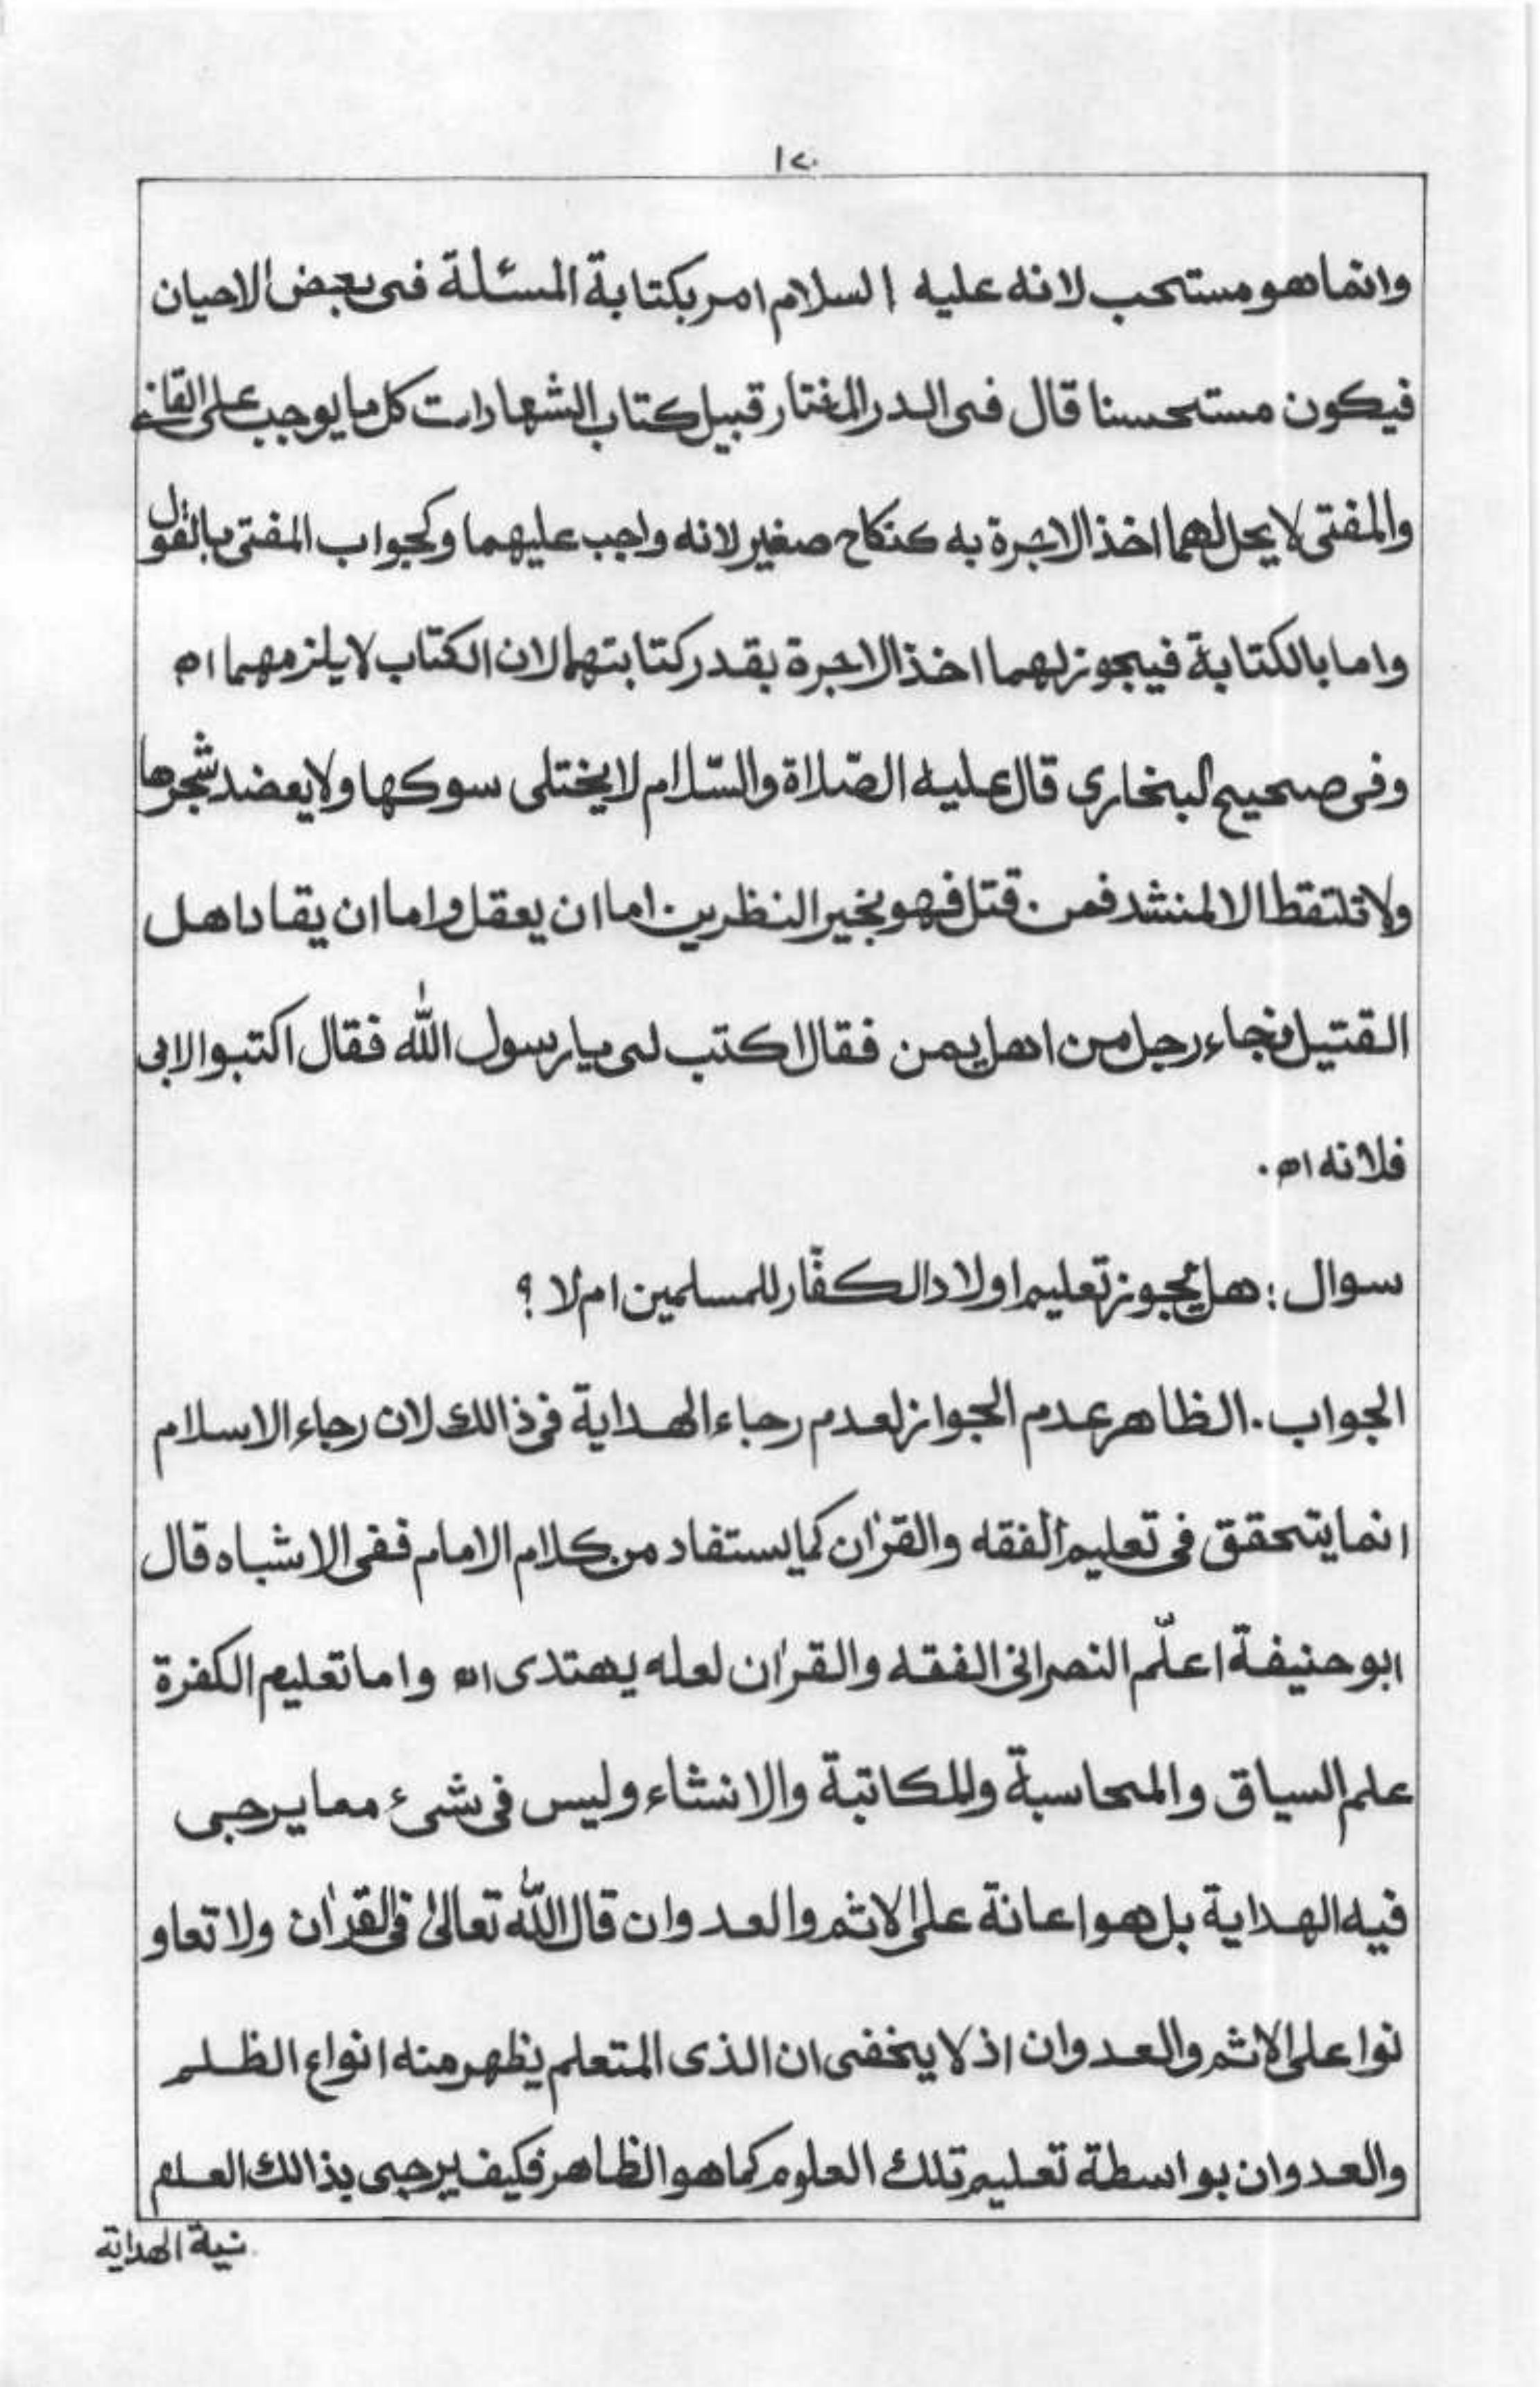 ١٢٠
وانما هو مستحب لانه عليه السلام امر بكتابة المسئلة فى بعض الاحيان
فيكون مستحسنا قال فى الدر المختار قبيل كتاب الشهادات كل ما يوجب على القاضى
والمفتى لا يحل لهما اخذ الاجرة به كنكاح صغير لانه واجب عليهما وكجواب المفتى بالقول
واما بالكتابة فيجوز لهما اخذ الاجرة بقدر كتابتهما لان الكتاب لا يلزمهما اه
وفى صحيح البخارى قال عليه الصّلاة والسّلام لا يختلى سوكها ولا يعضد شجرها
ولا تلتقط الا لمنشد فمن قتل فهو بخير النظرين اما ان يعقل واما ان يقاد اهل
القتيل فجاء رجل من اهل يمن فقال اكتب لى يا رسول الله فقال اكتبوا لابى
فلانه اه.
سوال : هل يجوز تعليم اولاد الكفّار للمسلمين ام لا ؟
الجواب . الظاهر عدم الجواز لعدم رجاء الهداية فى ذالك لان رجاء الاسلام
انما يتحقق فى تعليم الفقه والقرٰان كما يستفاد من كلام الامام ففى الاشباه قال
ابو حنيفة اعلّم النصرانى الفقه والقرٰان لعله يهتدى اه واما تعليم الكفرة
علم السياق والمحاسبة وللمكاتبة والانشاء وليس فى شىء مما يرجى
فيه الهداية بل هو اعانة على الاثم والعدوان قال الله تعالىٰ فى القرٰان ولا تعاو
نوا على الاثم والعدوان اذ لا يخفى ان الذى المتعلم يظهر منه انواع الظلم
والعدوان بواسطة تعليم تلك العلوم كما هو الظاهر فكيف يرجى بذالك العلم
نية الهداية